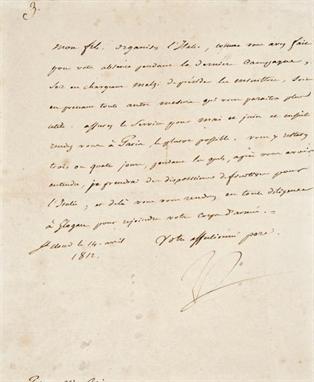 3.
Mon fils. organisez l'Italie, comme vous avez fait
pour votre absence pendant la dernière Campagne,
soit en chargeant Melzi de présider les ministres, soit
en prenant toute autre mesure qui vous paraîtra plus
utile. assurez le Service pour mai et juin et ensuite
rendez vous à Paris le plutôt possible. vous y resterez
trois ou quatre jours, pendant lesquels, après vous avoir
entendu, je prendrai des dispositions définitives pour
l'Italie, et delà vous vous rendrez en toute diligence
à Glogau pour rejoindre votre corps d'armée.
St Cloud le 14. avril
1812.
Votre affectionné père.